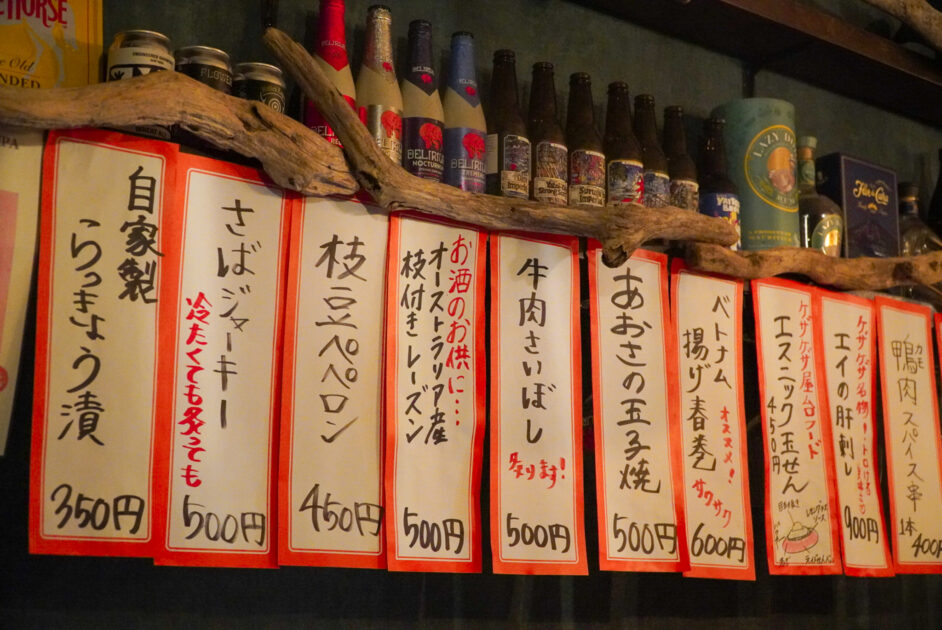 HORSE
NDED
FLOWE
DELIRIUM
NOCTURNUM
DELIRIUM
Imperial
LAZY DODO
RUM
MAURITIUS
自家製
らっきょう漬
350円
さばジャーキー
冷たくても炙っても
500円
枝豆ペペロン
450円
お酒のお供に…
オーストラリア産
枝付きレーズン
500円
牛肉さいぼし
炙ります!
500円
あおさの玉子焼
500円
ベトナム
揚げ春巻
オススメ!
サクサク
600円
ケザケザ屋ムロフード
エスニック玉せん
450円
ケザケザ名物!
エイの肝刺し
900円
カモ
鴨肉スパイス串
1本
400円